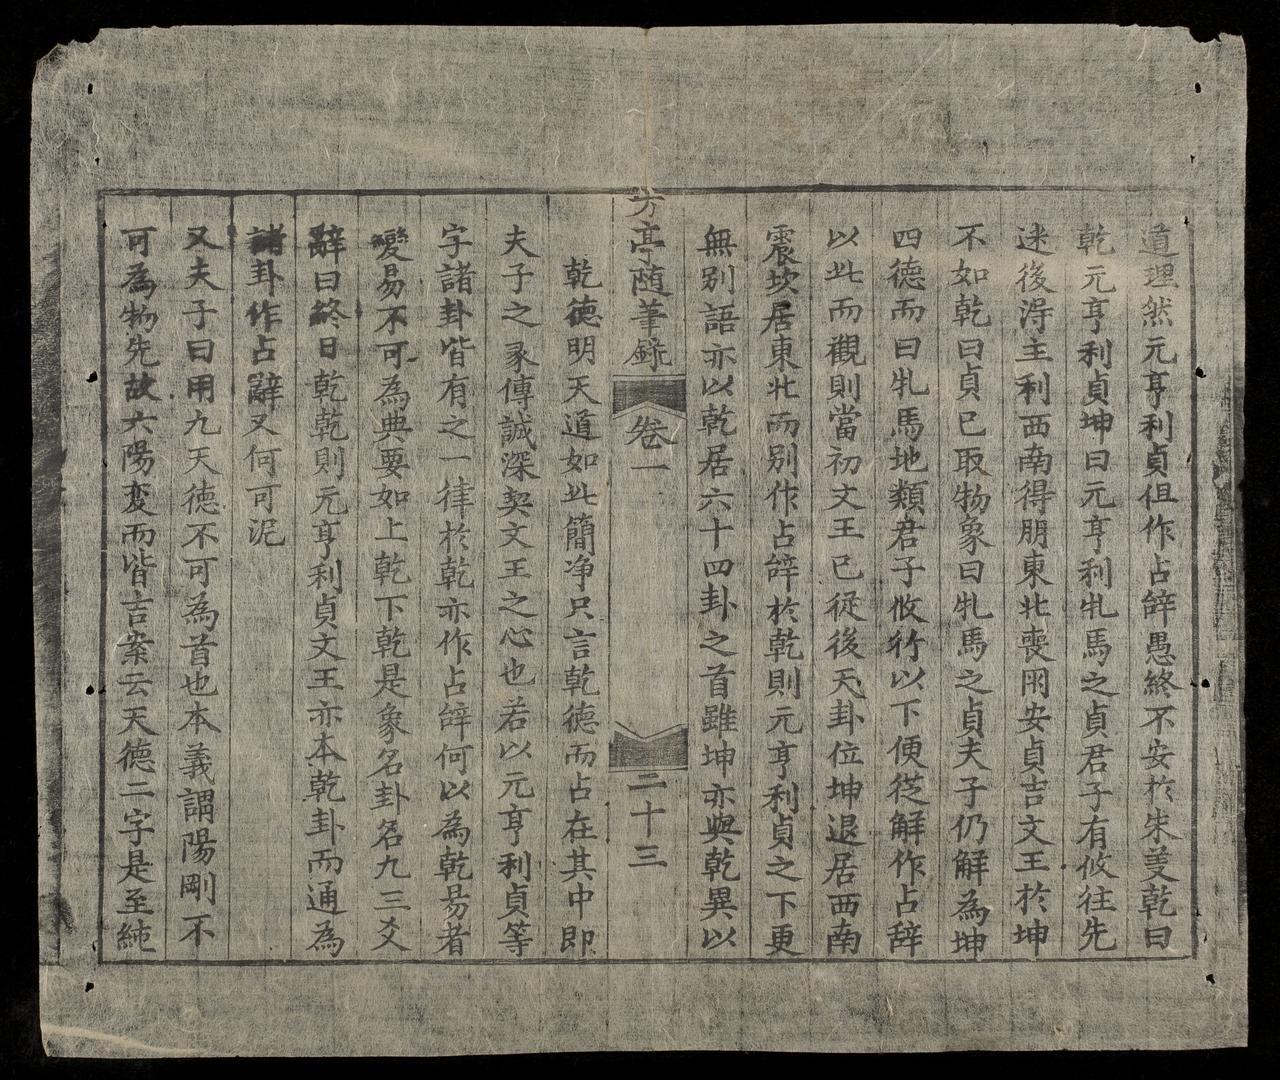 道理然元亨利貞但作占辭愚終不安於朱义乾曰
乾元亨利貞坤曰元亨利牝馬之貞君子有攸往先
迷後淂主利西南得朋東北喪朋安貞吉文王於坤
不如乾曰貞已取物象曰牝馬之貞夫子仍解為坤
四德而曰牝馬地類君子攸行以下便從解作占辞
以此而觀則當初文王已從後天卦位坤退居西南
震坎居東北而别作占辭於乾則元亨利貞之下更
無别語亦以乾居六十四卦之首雖坤亦與乾異以
方亭随筆錄 卷一 二十三
乾德明天道如此簡净只言乾德而占在其中即
夫子之彖傳誠深契文王之心也若以元亨利貞等
字諸卦皆有之一律於乾亦作占辭何以為乾易者
變易不可為典要如上乾下乾是象名卦名九三爻
辭曰終日乾乾則元亨利貞文王亦本乾卦而通為
諸卦作占辭又何可泥
又夫子曰用九天德不可為首也本義謂陽剛不
可為物先故六陽変而皆吉案云天德二字是至純